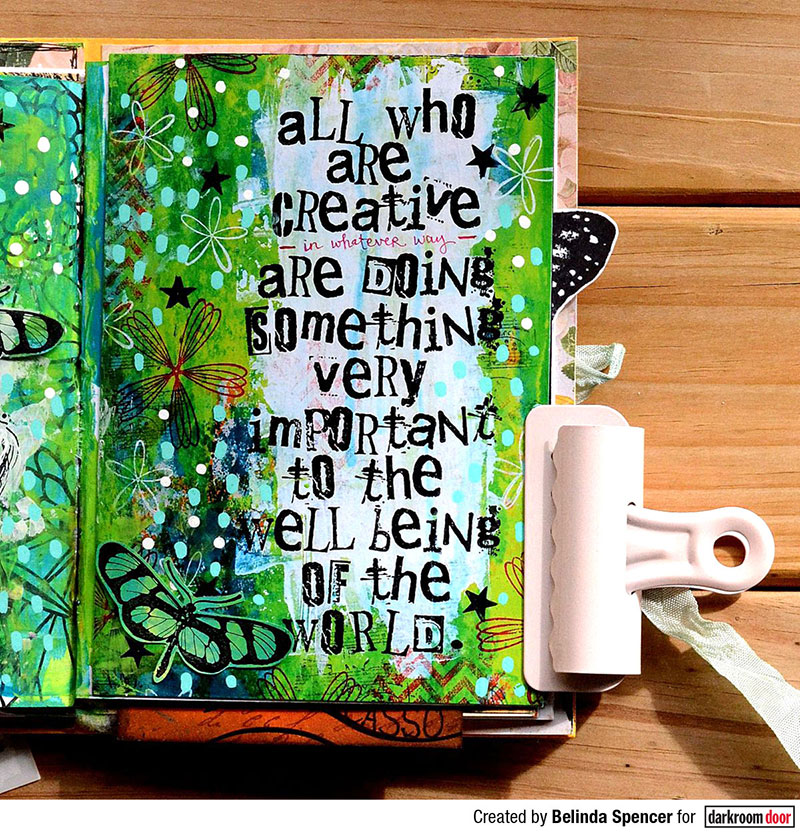 all who
are
creative
— in whatever way —
are doing
something
very
important
to the
well being
of the
world.
CASSO
Created by Belinda Spencer for darkroom door